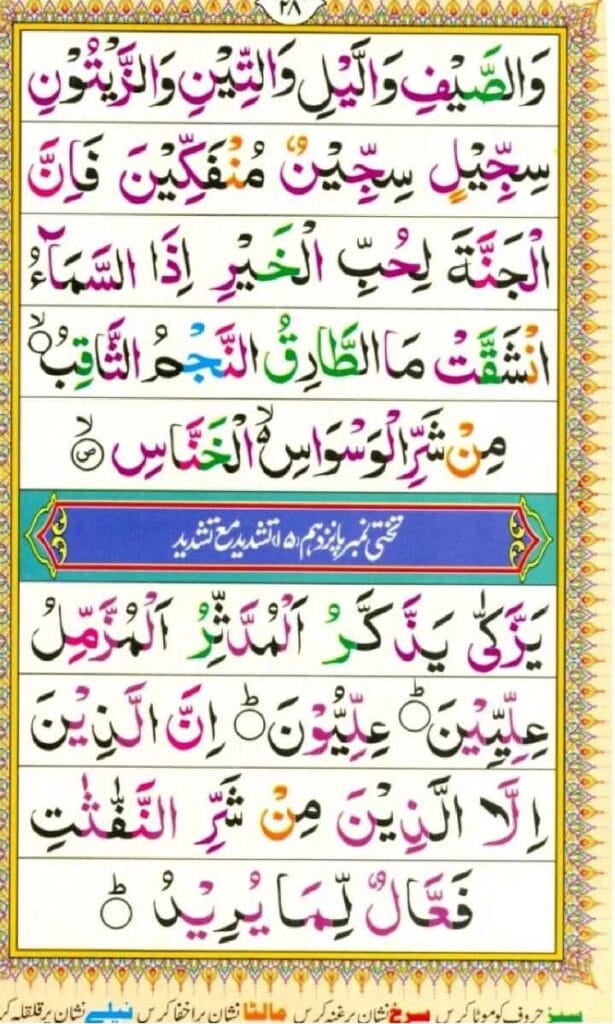 ٢٨
وَالصَّيْفِ وَالَّيْلِ وَالتِّيْنِ وَالزَّيْتُوْنِ
سِجِّيْلٍ سِجِّيْنٌ مُنْفَكِّيْنَ فَاِنَّ
الْجَنَّةَ لِحُبِّ الْخَيْرِ اِذَا السَّمَآءُ
انْشَقَّتْ مَا الطَّارِقُ النَّجْمُ الثَّاقِبُ ۙ
مِنْ شَرِّ الْوَسْوَاسِ ۙ الْخَنَّاسِ ۙ ص
تختی نمبر پانزدہم (۱۵) تشدید مع تشدید
يَزَّكّٰى يَذَّكَّرُ اَلْمُدَّثِّرُ اَلْمُزَّمِّلُ
عِلِّيِّيْنَ ؕ عِلِّيُّوْنَ ؕ اِنَّ الَّذِيْنَ
اِلَّا الَّذِيْنَ مِنْ شَرِّ النَّفّٰثٰتِ
فَعَّالٌ لِّمَا يُرِيْدُ ؕ
سبز حروف کو موٹا کریں سرخ نشان پر غنہ کریں مالٹا نشان پر اخفا کریں نیلے نشان پر قلقلہ کر